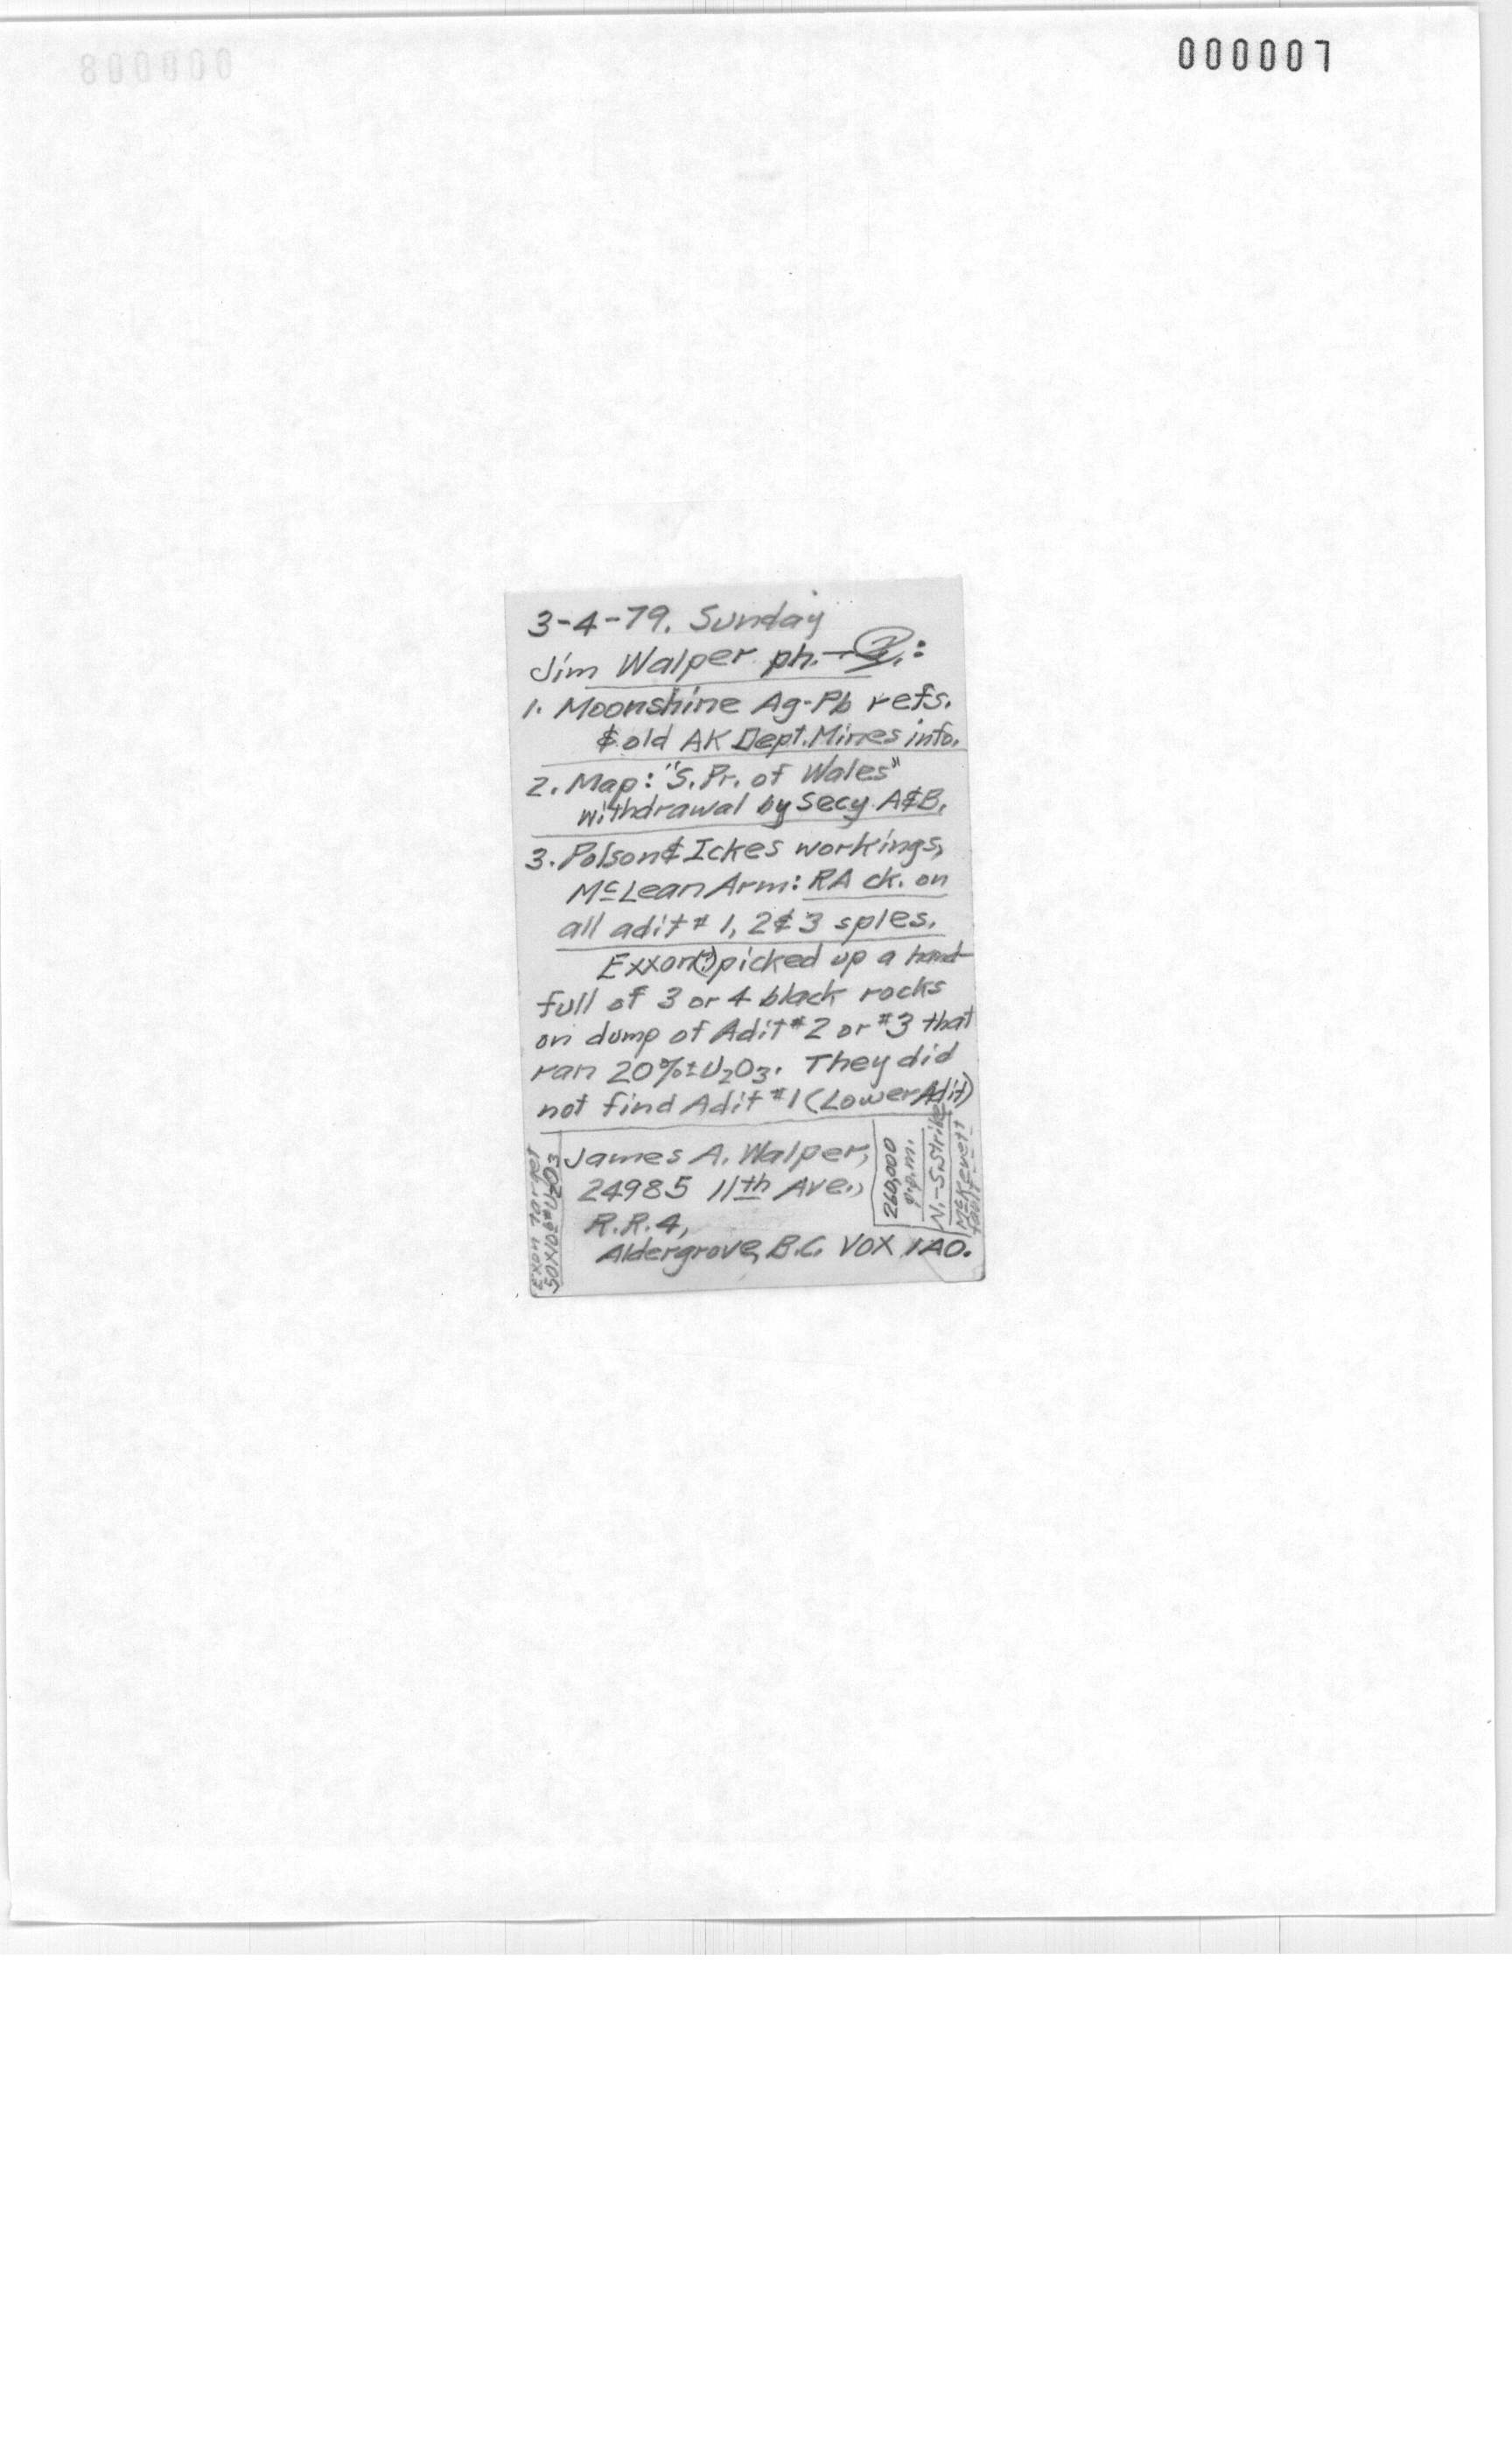 000007
3-4-79. Sunday
Jim Walper ph.
1. Moonshine Ag-Pb refs.
& old AK Dept. Mines info.
2. Map: "S. Pr. of Wales"
withdrawal by Secy. A&B.
3. Polson & Ickes workings,
McLean Arm: RA ck. on
all adit # 1, 2 & 3 sples.
Exxon(?) picked up a hand-
full of 3 or 4 black rocks
on dump of Adit #2 or #3 that
ran 20%± U2O3. They did
not find Adit #1 (Lower Adit)
James A. Walper,
24985 11th Ave.,
R.R.4,
Aldergrove, B.C. V0X 1A0.
260,000
p.p.m.
N.-S. Strike
McKevett
fault
Exon Target
50x106# U2O3
000008